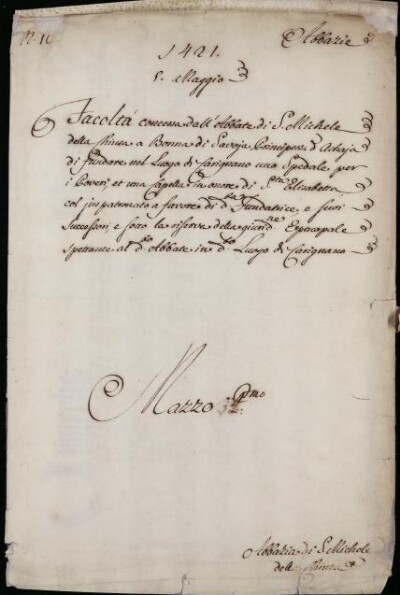 N. 10
Abbazie
1421.
5. Maggio
Facoltà concessa dall'Abbate di S. Michele
della Chiusa a Bonna di Savoja Principess.ª d'Achaja
di fundare nel Luogo di Carignano uno Spedale per
i Poveri, et una Capella in onore di S.ta Elisabetta
col juspatronato a favore di d.ta Fundatrice, e suoi
Successori, e sotto la riserva della giurid.ne Episcopale
spettante al d.to Abbate in d.to Luogo di Carignano
Mazzo P.mo
Abbazia di S. Michele
della Chiusa